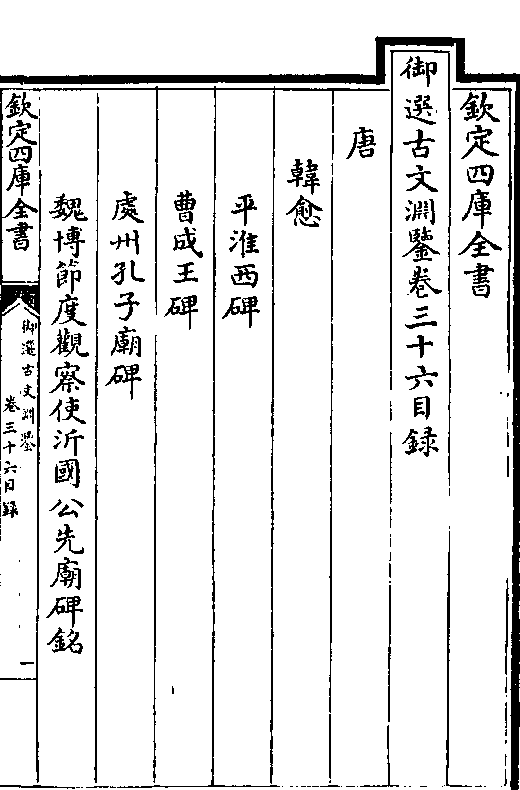 欽定四庫全書
御選古文淵鑒卷三十六目録
唐
韓愈
平淮西碑
曹成王碑
處州孔子廟碑
魏博節度觀察使沂國公先廟碑銘
欽定四庫全書
御選古文淵鑒
卷三十六目録
一